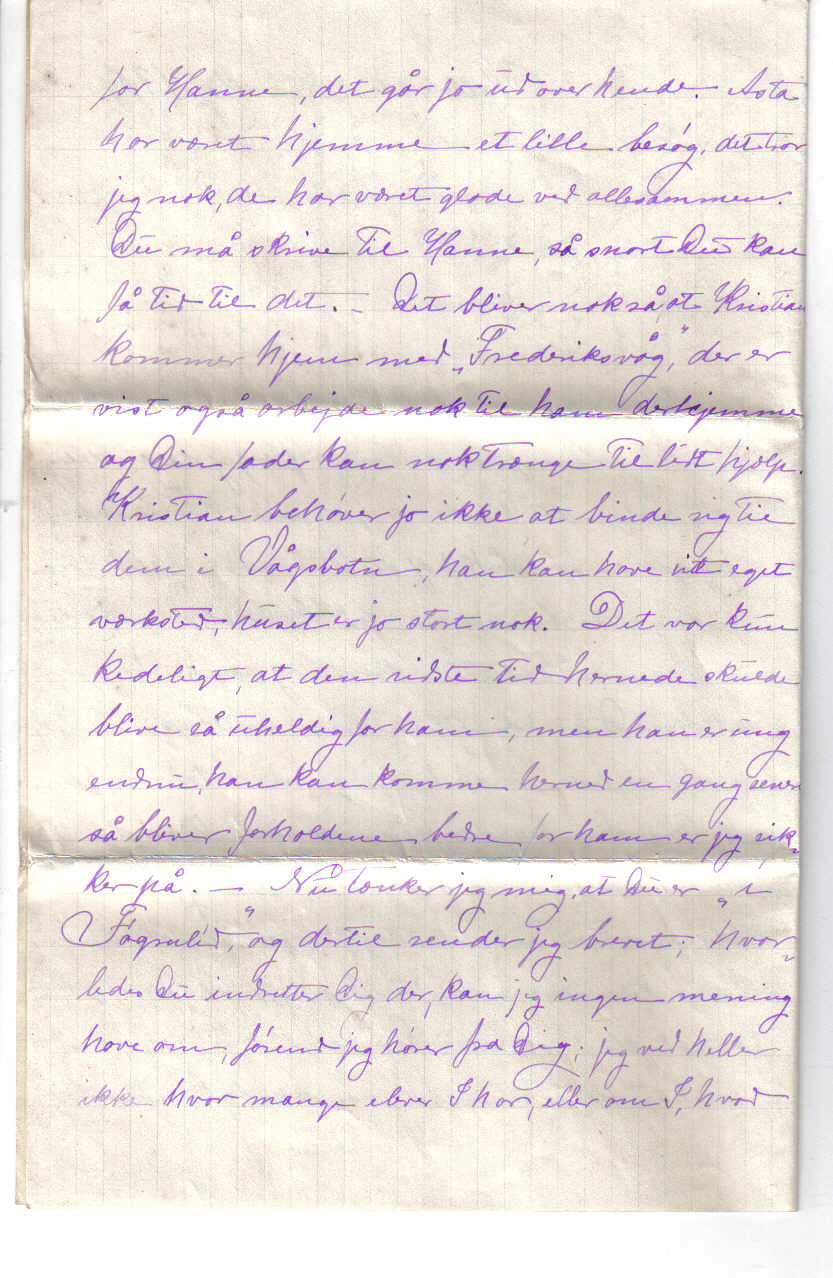 for Hanne, det går jo ud over hende. Asta
har været hjemme et lille besøg, det tror
jeg nok, de har været glade ved allesammen.
Du må skrive til Hanne, så snart Du kan
få tid til det. — Det bliver nok så at Kristian
kommer hjem med „Frederiksvåg”, der er
vist også arbejde nok til ham derhjemme
og Din fader kan nok trænge til lidt hjælp.
Kristian behøver jo ikke at binde sig til
dem i Vågsbotn, han kan have sit eget
værksted; huset er jo stort nok. Det var kun
kedeligt, at den sidste tid hernede skulde
blive så uheldig for ham, men han er ung
endnu, han kan komme herned en gang senere
så bliver forholdene bedre for ham er jeg sik-
ker på. — Nu tænker jeg mig, at Du er i
„Fagralid,” og dertil sender jeg brevet; hvor-
ledes Du indretter Dig der, kan jeg ingen mening
have om, førend jeg hører fra Dig; jeg ved heller
ikke hvor mange elever I har, eller om I, hvad